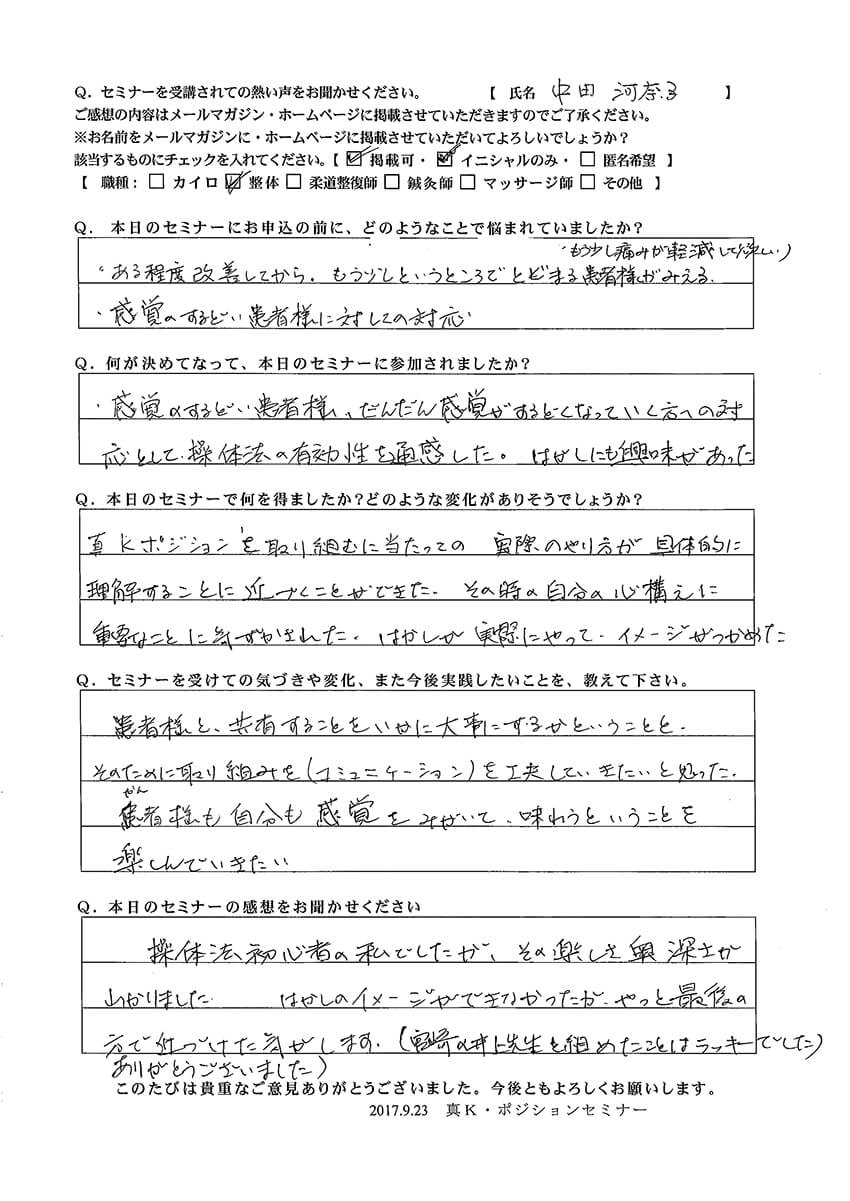 Q．セミナーを受講されての熱い声をお聞かせください。　【 氏名 中田 河奈子 】
ご感想の内容はメールマガジン・ホームページに掲載させていただきますのでご了承ください。
※お名前をメールマガジンに・ホームページに掲載させていただいてよろしいでしょうか？
該当するものにチェックを入れてください。【 ☑ 掲載可・ ☑ イニシャルのみ・ □ 匿名希望 】
【 職種： □ カイロ ☑ 整体 □ 柔道整復師 □ 鍼灸師 □ マッサージ師 □ その他 】
Q．本日のセミナーにお申込の前に、どのようなことで悩まれていましたか？
・もう少し痛みが軽減して欲しい）
・ある程度改善してから、もう少しというところでとどまる患者様がみえる、
・感覚のするどい患者様に対しての対応
Q．何が決めてなって、本日のセミナーに参加されましたか？
・感覚のするどい患者様、だんだん感覚がするどくなっていく方への対
応として、操体法の有効性を通感した。はがしにも興味があった
Q．本日のセミナーで何を得ましたか？どのような変化がありそうでしょうか？
真Kポジションを取り組むに当たっての 実際のやり方が具体的に
理解することに近づくことができた。その時の自分の心構えに
重要なことに気づかされた。はがしが実際にやって、イメージがつかめた
Q．セミナーを受けての気づきや変化、また今後実践したいことを、教えて下さい。
患者様と、共有することをいかに大事にするかということと、
そのために取り組みを（コミュニケーション）を工夫していきたいと思った。
かん
患者様も自分も感覚をみがいて、味わうということを
楽しんでいきたい
Q．本日のセミナーの感想をお聞かせください
操体法初心者の私でしたが、その楽しさ奥深さが
わかりました。 はがしのイメージができなかったが、やっと最後の
方で近づけた気がします。（宮崎の井上先生と組めたことはラッキーでした）
ありがとうございました）
このたびは貴重なご意見ありがとうございました。今後ともよろしくお願いします。
2017.9.23　真K・ポジションセミナー